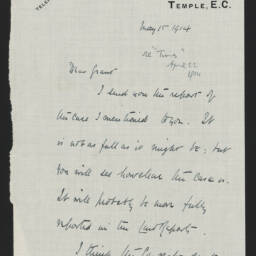 TELE
TEMPLE, E.C.
May 15 1914
re "Times"
April 22
1914
Dear Grant
I send you the report of
the case I mentioned to you. It
is not as full as it might be; but
you will see how clear the case is.
It will probably be more fully
reported in the Law Reports.
I think the